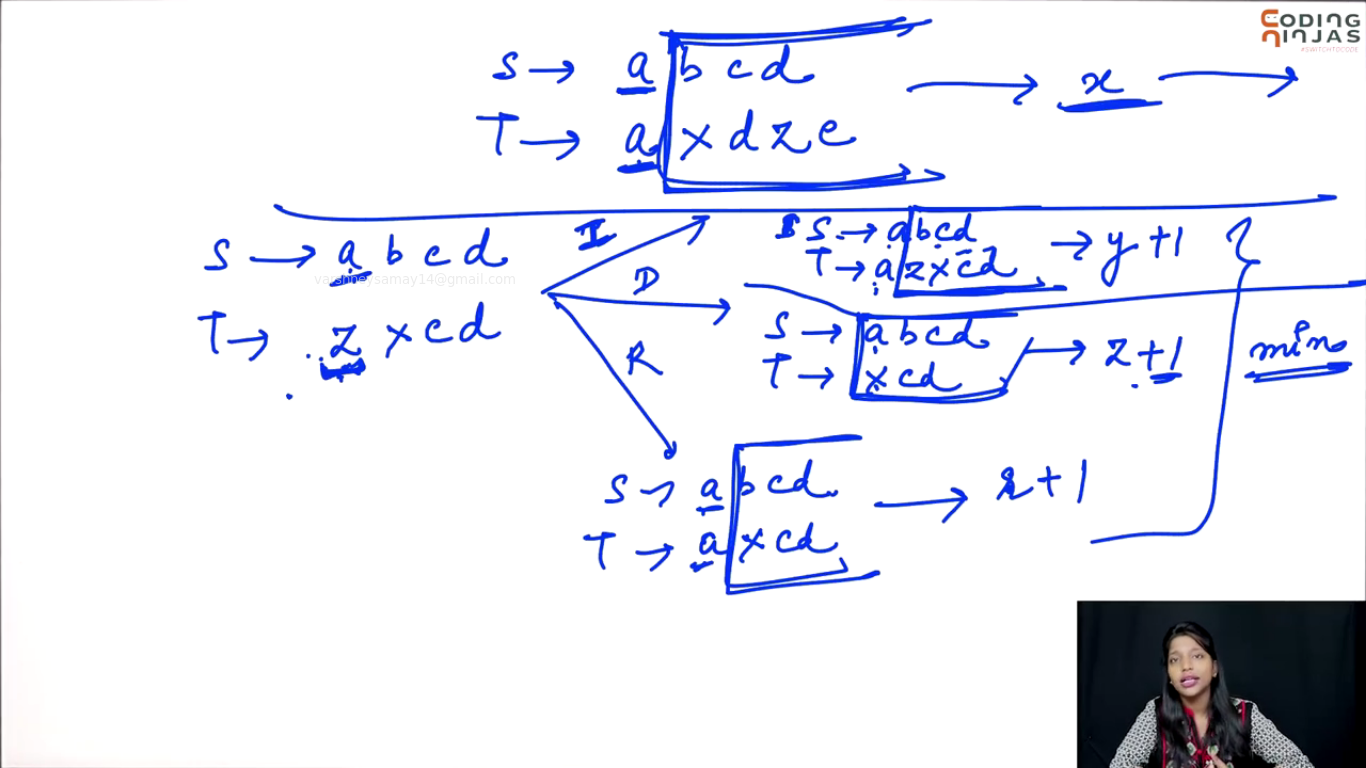 CODING
NINJAS
#SWITCHTOCODE
S → a b c d → x →
T → a x d z e
S → a b c d
T → z x c d
varshneysamay14@gmail.com
I
D
R
S → a b c d → y + 1
T → a z x c d
S → a b c d → z + 1
T → x c d
min
S → a b c d → r + 1
T → a x c d